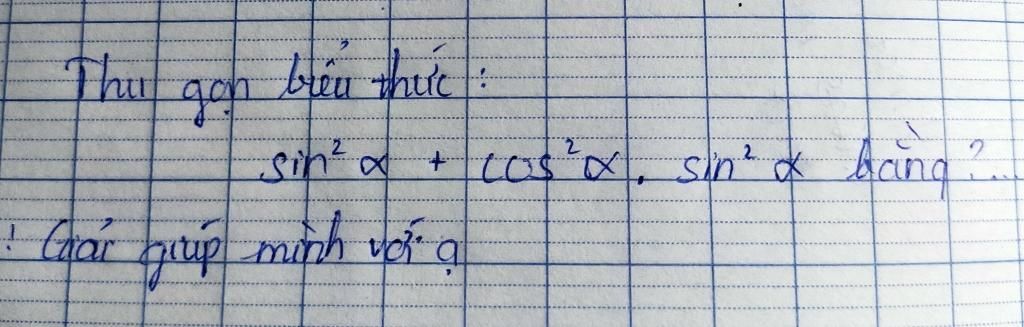 Thu gọn biểu thức :
sin² α + cos² α . sin² α bằng ?...
! Giải giúp mình với ạ